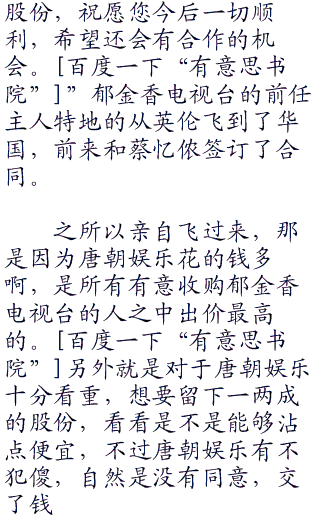 股份，祝愿您今后一切顺
利，希望还会有合作的机
会。[百度一下“有意思书
院”]”郁金香电视台的前任
主人特地的从英伦飞到了华
国，前来和蔡忆侬签订了合
同。
之所以亲自飞过来，那
是因为唐朝娱乐花的钱多
啊，是所有有意收购郁金香
电视台的人之中出价最高
的。[百度一下“有意思书
院”]另外就是对于唐朝娱乐
十分看重，想要留下一两成
的股份，看看是不是能够沾
点便宜，不过唐朝娱乐有不
犯傻，自然是没有同意，交
了钱